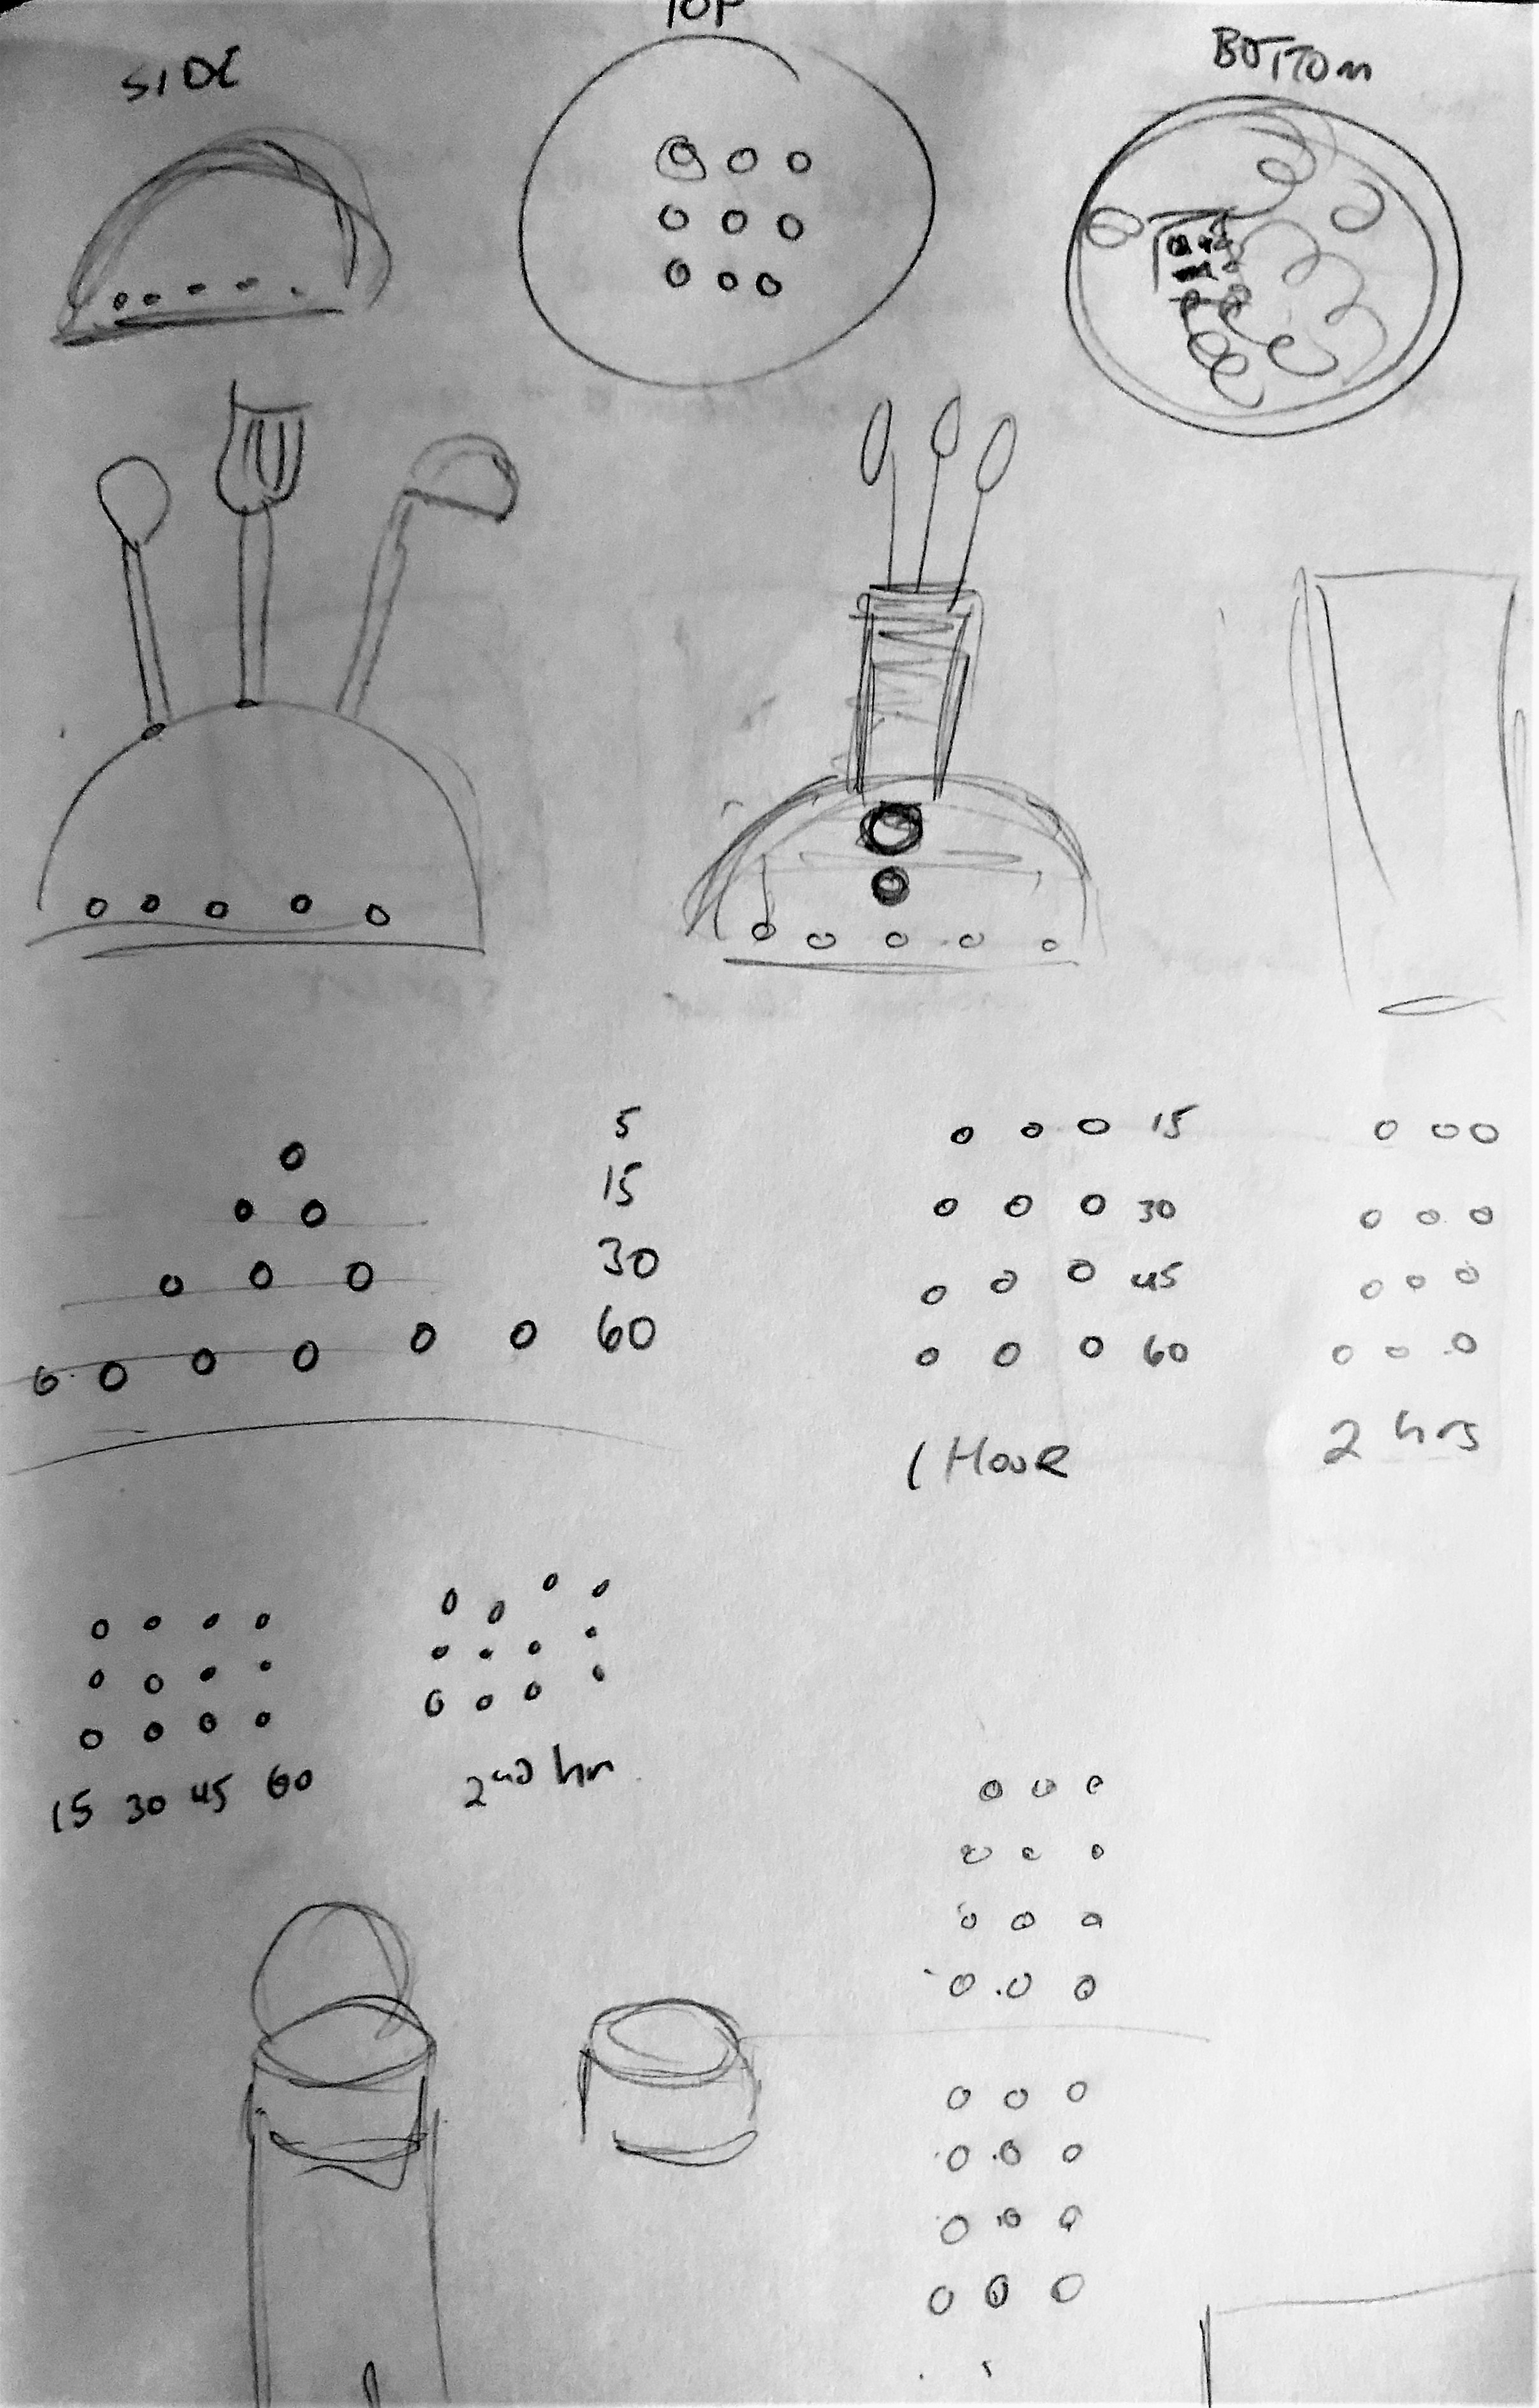 SIDE
TOP
BOTTOM
5
15
30
60
15
30
45
60
1 HOUR
2 hrs
15 30 45 60
2ND hr